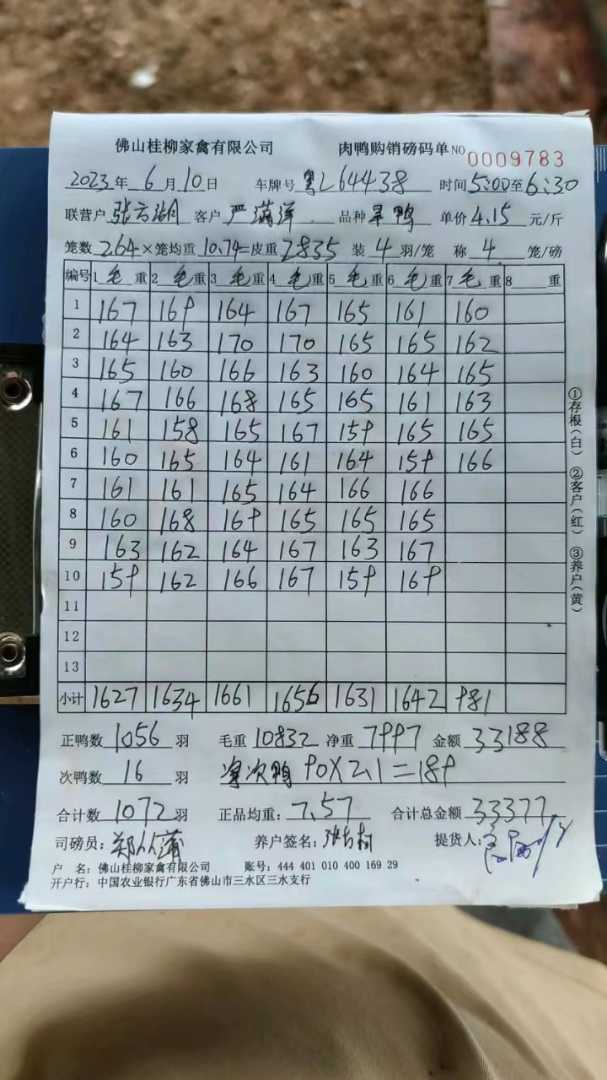 佛山桂柳家禽有限公司 肉鸭购销磅码单 NO 0009783
2023年 6月 10日 车牌号 粤L64438 时间 5:00至6:30
联营户 客户 严满洋 品种 旱鸭 单价 4.15 元/斤
笼数 264 ×笼均重 10.74=皮重 2835 装 4 羽/笼 称 4 笼/磅
编号 1 毛重 2 毛重 3 毛重 4 毛重 5 毛重 6 毛重 7 毛重 8 重
1 167 169 164 167 165 161 160
2 164 163 170 170 165 165 162
3 165 160 166 163 160 164 165
4 167 166 168 165 165 161 163
5 161 158 165 167 159 165 165
6 160 165 164 161 164 159 166
7 161 161 165 164 166 166
8 160 168 169 165 165 165
9 163 162 164 167 163 167
10 159 162 166 167 159 169
11
12
13
小计 1627 1634 1661 1656 1631 1642 981
正鸭数 1056 羽 毛重 10832 净重 7997 金额 33188
次鸭数 16 羽 次鸭 90×2.1=189
合计数 1072 羽 正品均重: 7.57 合计总金额 33377
司磅员: 郑 养户签名: 提货人:
户 名: 佛山桂柳家禽有限公司 账号: 444 401 010 400 169 29
开户行: 中国农业银行广东省佛山市三水区三水支行
①存根(白) ②客户(红) ③养户(黄)